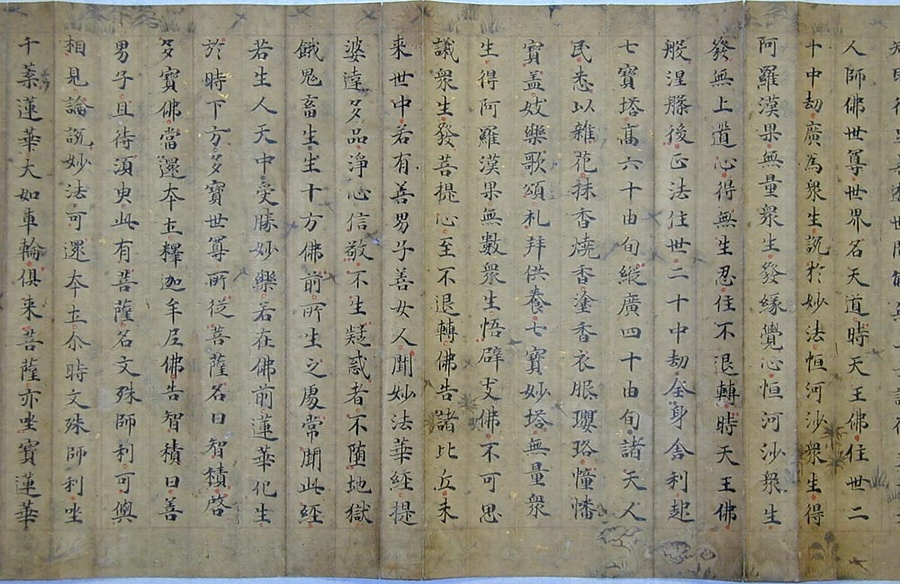 人師佛世尊世界名天道時天王佛住世二
十中劫廣為衆生説於妙法恒河沙衆生得
阿羅漢果無量衆生發縁覺心恒河沙衆生
發無上道心得無生忍住不退轉時天王佛
般涅槃後正法住世二十中劫全身舍利起
七寶塔高六十由旬縱廣四十由旬諸天人
民悉以雜花抹香燒香塗香衣服瓔珞幢幡
寶盖妓樂歌頌礼拜供養七寶妙塔無量衆
生得阿羅漢果無數衆生悟辟支佛不可思
議衆生發菩提心至不退轉佛告諸比丘未
来世中若有善男子善女人聞妙法華經提
婆達多品淨心信敬不生疑惑者不墮地獄
餓鬼畜生生十方佛前所生之處常聞此經
若生人天中受勝妙樂若在佛前蓮華化生
於時下方多寶世尊所從菩薩名曰智積啓
多寶佛當還本土釋迦牟尼佛告智積曰善
男子且待須臾此有菩薩名文殊師利可與
相見論説妙法可還本土尒時文殊師利坐
千葉蓮華大如車輪俱来菩薩亦坐寶蓮華